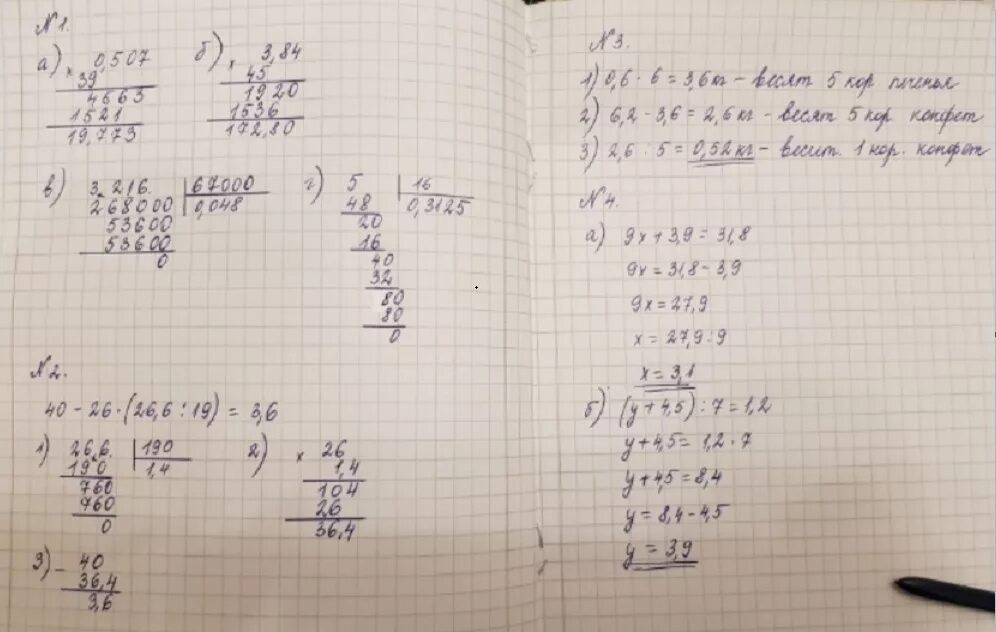 №1.
а) × 0,507
39
4663
1521
19,773
б) × 3,84
45
1920
1536
172,80
в) 3,216. | 67000
268000 | 0,048
53600
53600
0
г) 5 | 16
48 | 0,3125
20
16
40
32
80
80
0
№2.
40 - 26 · (26,6 : 19) = 3,6
1) 26,6. | 190
190 | 1,4
760
760
0
2) × 26
1,4
104
26
36,4
3) - 40
36,4
3,6
№3.
1) 0,6 · 6 = 3,6 кг - весят 5 кор печенья
2) 6,2 - 3,6 = 2,6 кг - весят 5 кор конфет
3) 2,6 : 5 = 0,52 кг - весит 1 кор. конфет
№4.
а) 9x + 3,9 = 31,8
9x = 31,8 - 3,9
9x = 27,9
x = 27,9 : 9
x = 3,1
б) (y + 4,5) : 7 = 1,2
y + 4,5 = 1,2 · 7
y + 4,5 = 8,4
y = 8,4 - 4,5
y = 3,9